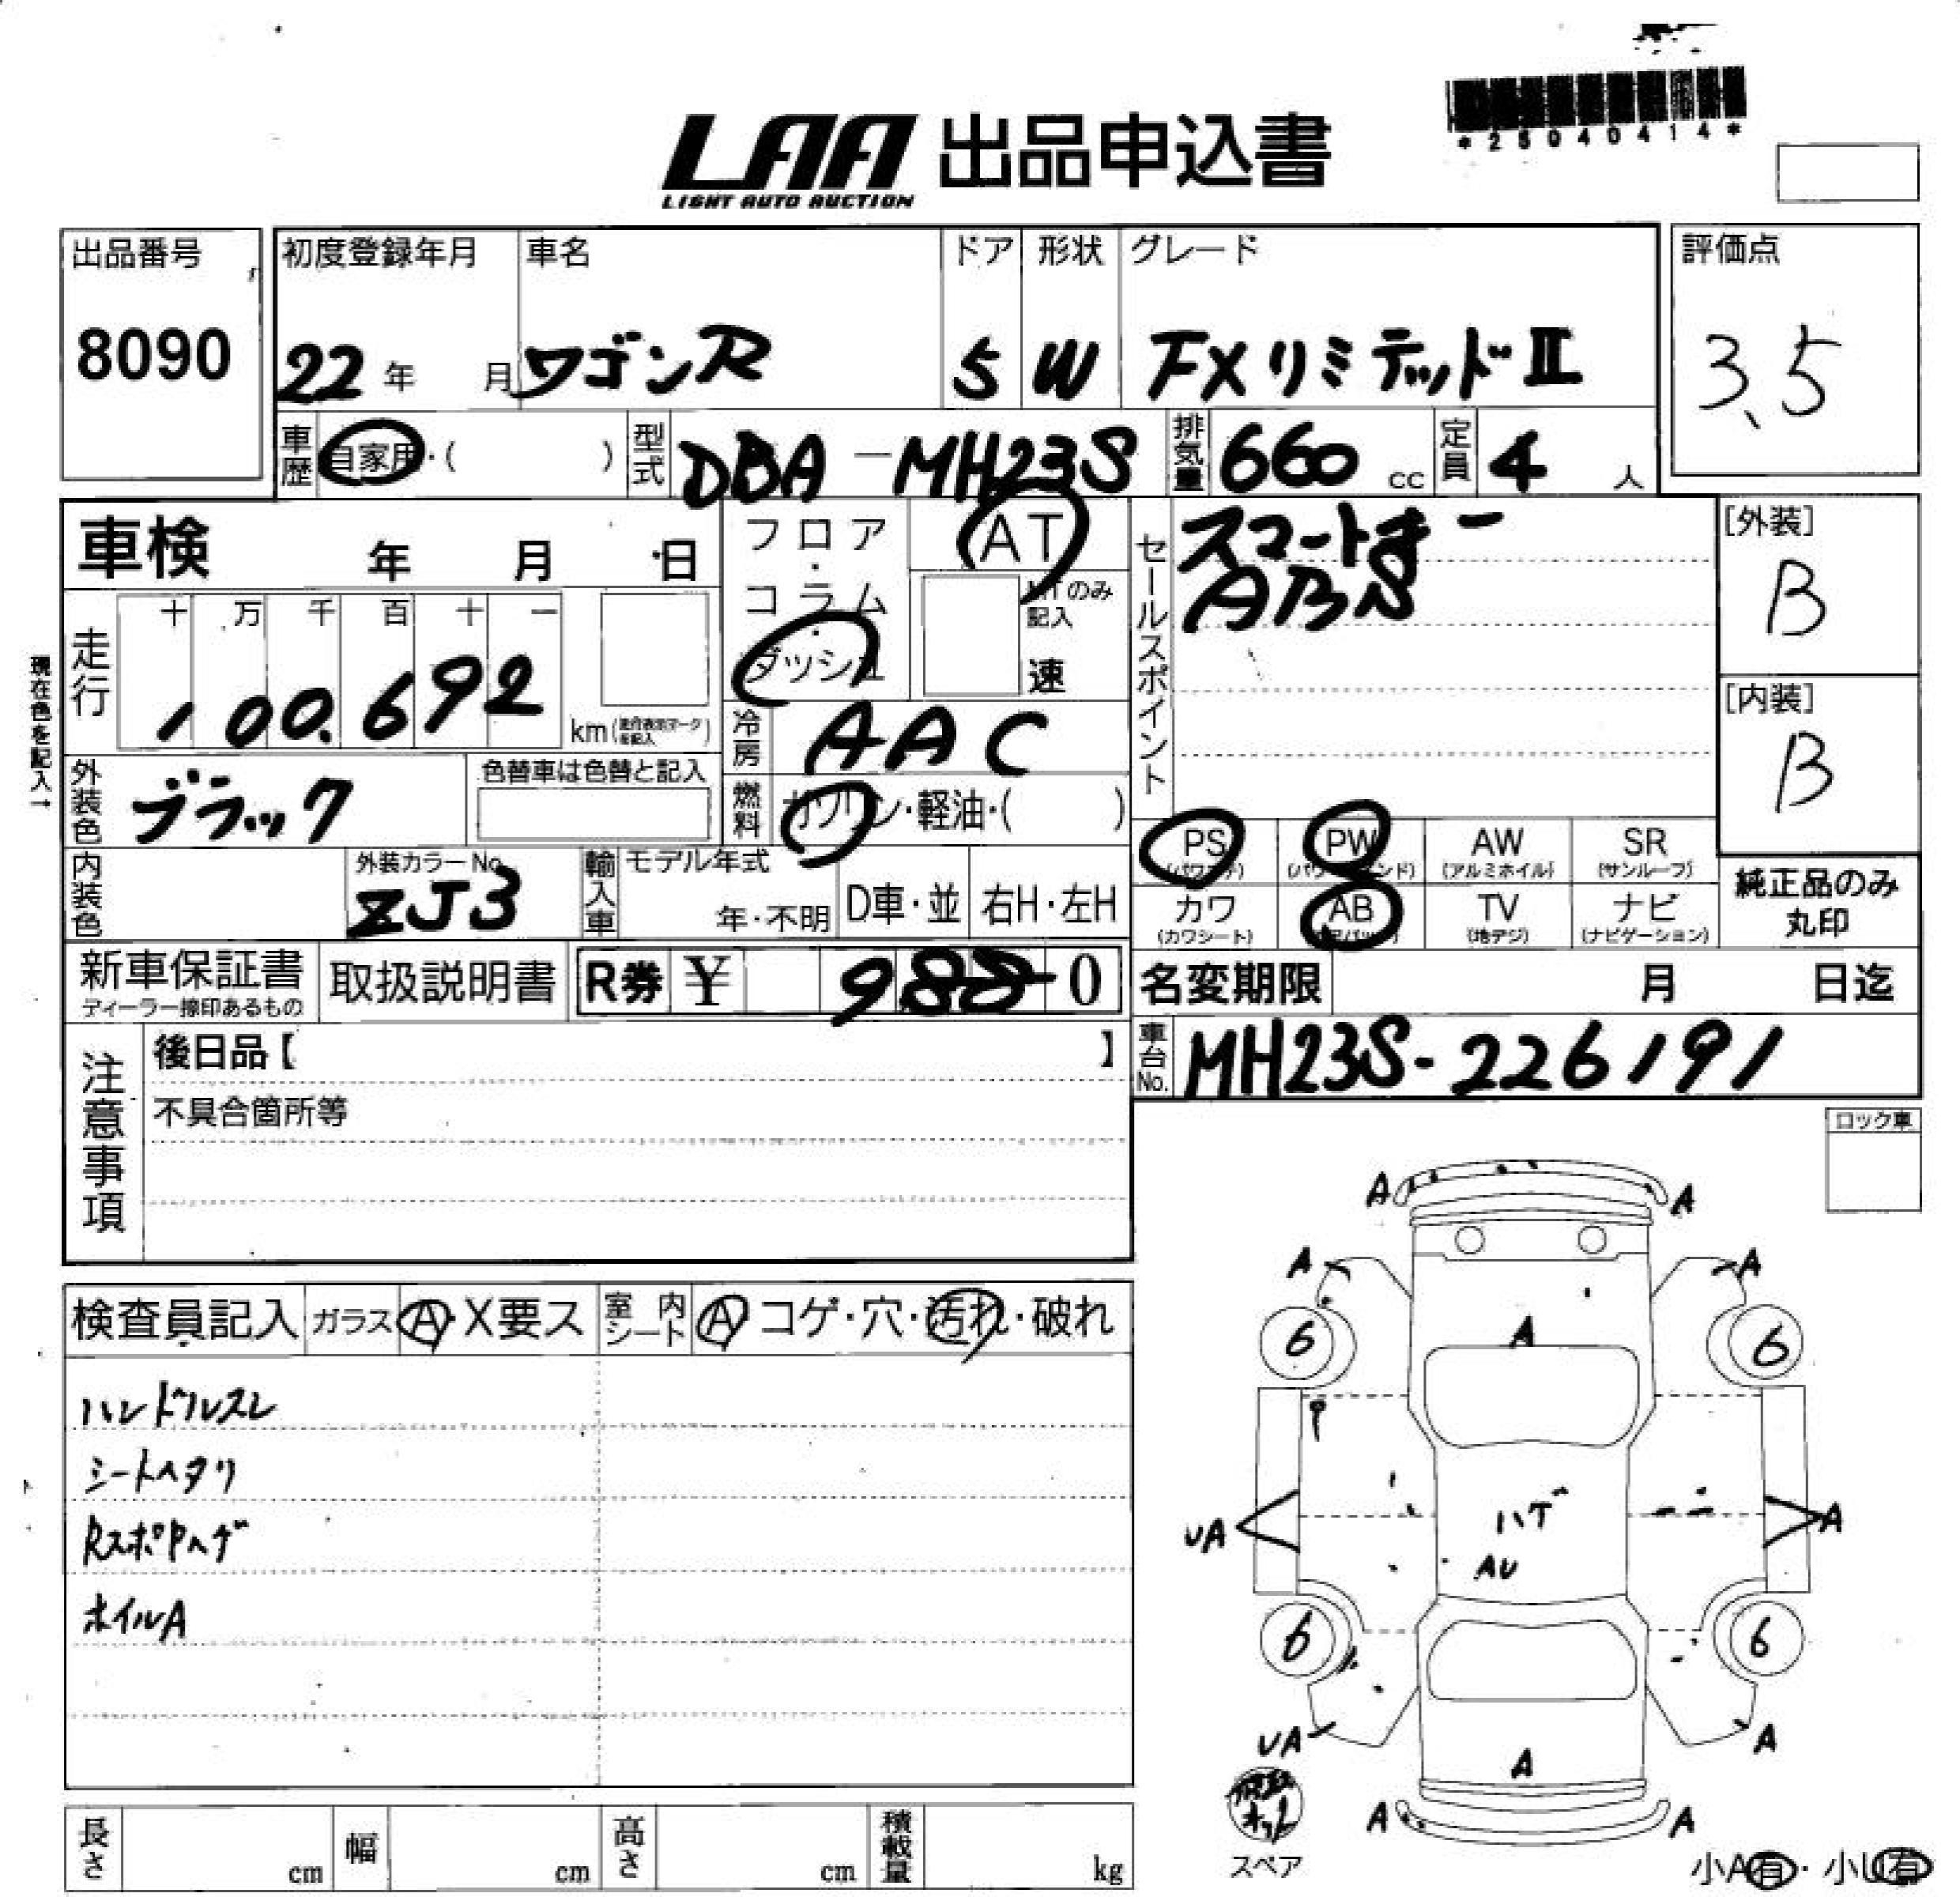 *25040414*
LAA 出品申込書
LIGHT AUTO AUCTION
出品番号 初度登録年月 車名 ドア 形状 グレード 評価点
8090 22年 月 ワゴンR 5 W FXリミテッドⅡ 3.5
車歴 自家用・( ) 型式 DBA-MH23S 排気量 660 cc 定員 4 人
車検 年 月 日 フロア・コラム・ダッシュ AT セールスポイント スマートキー [外装]
MTのみ記入 速 ABS B
現在色を記入→
走行 十 万 千 百 十 一
100.692 km(走行表示マークを記入) 冷房 AAC [内装]
B
外装色 ブラック 色替車は色替と記入 燃料 ガソリン・軽油・( )
PS PW AW SR
(パワステ) (パワーウインド) (アルミホイル) (サンルーフ)
内装色 外装カラーNo. ZJ3 輸入車 モデル年式 年・不明 D車・並 右H・左H 純正品のみ
カワ AB TV ナビ 丸印
(カワシート) (地デジ) (ナビゲーション)
新車保証書 取扱説明書 R券 ¥ 988-0 名変期限 月 日迄
ディーラー捺印あるもの
注意事項 後日品【 】 車台No. MH23S-226191
不具合箇所等
ロック車
A A
A A
検査員記入 ガラス A・X要ス 室内シート A コゲ・穴・汚れ・破れ
6 A 6
ハンドルスレ
P
シートヘタリ
RスポPハゲ ハゲ
UA A
AU
ホイルA
6 6
UA A
A
A A
スペア
小A有・小U有
長さ cm 幅 cm 高さ cm 積載量 kg